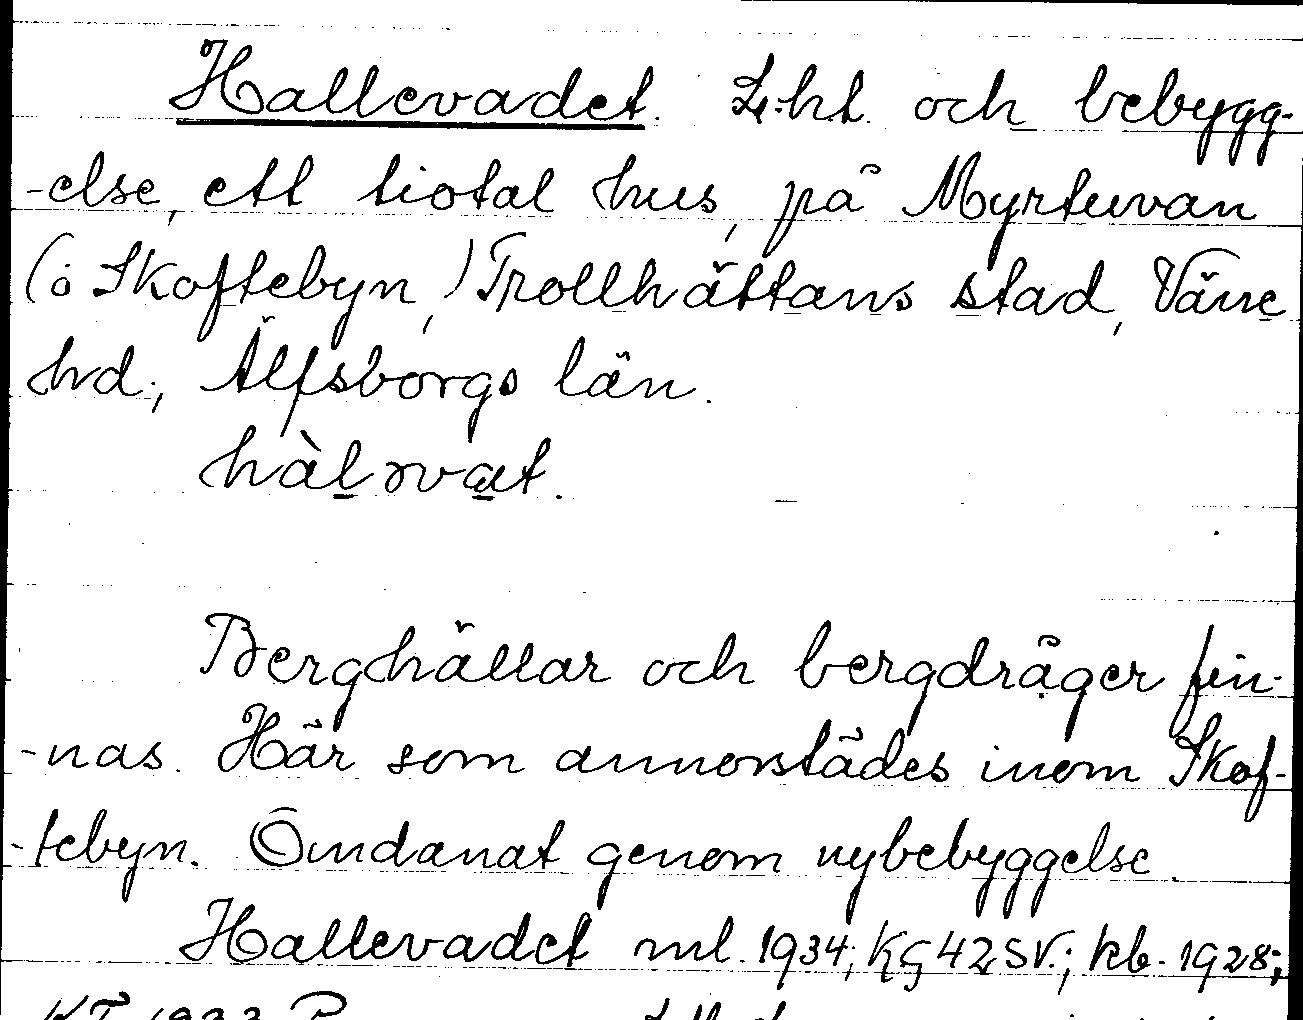 Hallevadet. L:ht. och bebygg-
-else, ett tiotal hus, på Myrtuvan
(i Skoftebyn,) Trollhättans stad, Väne
hd., Älfsborgs län.
Berghällar och bergdråger fin-
-nas. Här som annorstädes inom Skof-
-tebyn. Omdanat genom nybebyggelse.
Hallevadet ml. 1934; KG 42 SV.; kb. 1928;